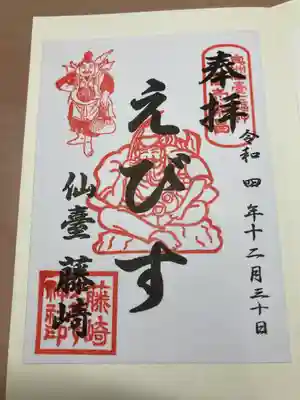 奉拝
令和四年十二月三十日
えびす
仙臺 藤崎
藤崎
神社印